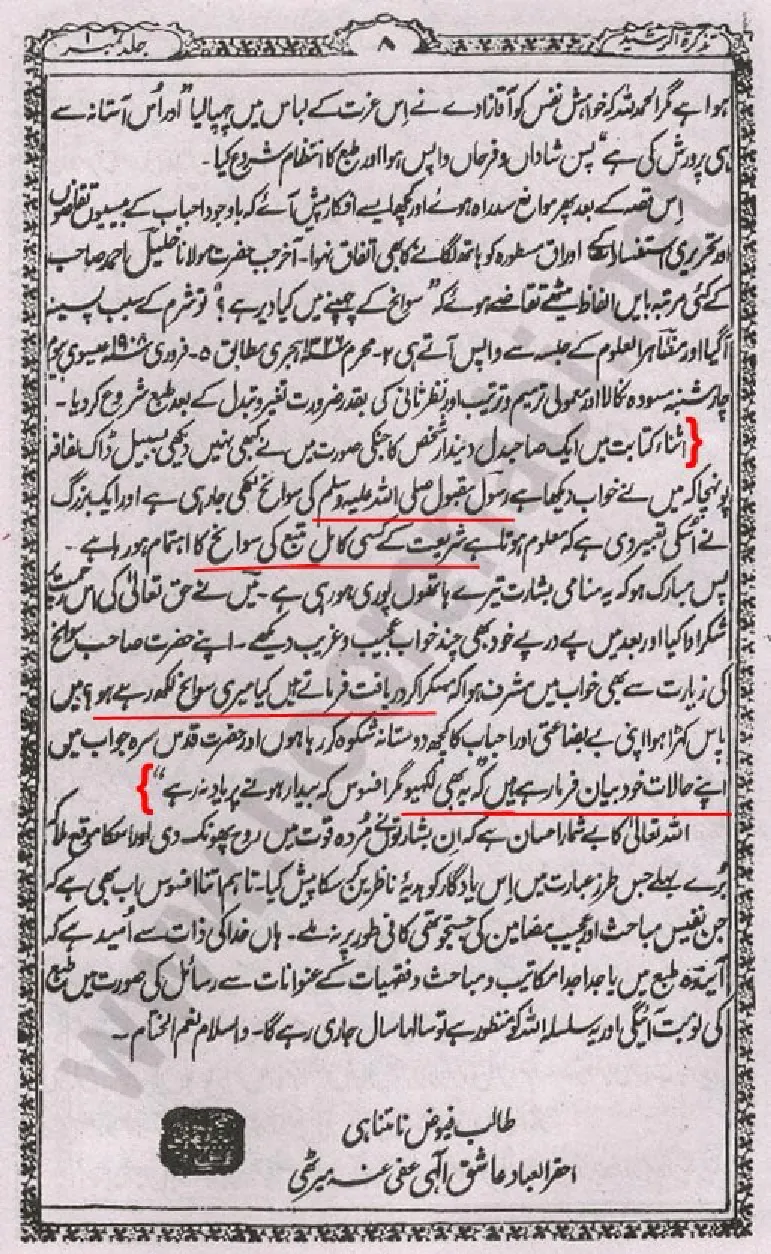 تذکرۃ الرشید
۸
جلد نمبر ۱
ہوا ہے مگر الحمد للہ کہ خواہش نفس کو آقازادے نے اِس عزت کے لباس میں چھپالیا" اور اُس آستانہ سے
ہی پرورش کی ہے" پس شاداں و فرحاں واپس ہوا اور طبع کا انتظام شروع کیا۔
اِس قصہ کے بعد پھر موانع سدراہ ہوئے اور کچھ ایسے افکار پیش آئے کہ باوجود احباب کے بیسیوں تقاضوں
اور تحریری استفسارات کے اوراق مسطورہ کو ہاتھ لگانے کا بھی اتفاق نہوا۔ آخر جب حضرت مولانا خلیل احمد صاحب
کے کئی مرتبہ بایں الفاظ میٹھے تقاضے ہوئے کہ "سوانح کے چھپنے میں کیا دیر ہے؟" تو شرم کے سبب پسینہ
آگیا اور مظاہر العلوم کے جلسہ سے واپس آتے ہی ۲۔ محرم ۱۳۲۶ ہجری مطابق ۵۔ فروری ۱۹۰۸ عیسوی یوم
چار شنبہ مسودہ نکالا اور معمولی ترمیم و ترتیب اور نظر ثانی کی بقدر ضرورت تغیر و تبدل کے بعد طبع شروع کردیا۔
{ اثناء کتابت میں ایک صاحبدل دیندار شخص کا جنکی صورت میں نے کبھی نہیں دیکھی بسبیل ڈاک لفافہ
پہونچا کہ میں نے خواب دیکھا ہے رسول مقبول صلی اللہ علیہ وسلم کی سوانح لکھی جارہی ہے اور ایک بزرگ
نے اُسکی تعبیر دی ہے کہ معلوم ہوتا ہے شریعت کے کسی کامل متبع کی سوانح کا اہتمام ہورہا ہے۔
پس مبارک ہو کہ یہ منامی بشارت تیرے ہاتھوں پوری ہورہی ہے۔ میں نے حق تعالیٰ کی اس رحمت پر
شکر ادا کیا اور بعد میں پے درپے خود بھی چند خواب عجیب و غریب دیکھے۔ اپنے حضرت صاحب سوانح
کی زیارت سے بھی خواب میں مشرف ہوا کہ مسکرا کر دریافت فرماتے ہیں کیا میری سوانح لکھ رہے ہو؟ میں
پاس کھڑا ہوا اپنی بے بضاعتی اور احباب کا کچھ دوستانہ شکوہ کررہا ہوں اور حضرت قدس سرہ جواب میں
اپنے حالات خود بیان فرمارہے ہیں کہ یہ بھی لکھیو مگر افسوس کہ بیدار ہونے پر یاد نہ رہے" }
اللہ تعالیٰ کا بے شمار احسان ہے کہ اِن بشارتوں نے مُردہ قوت میں روح پھونک دی اور اسکا موقع ملا کہ
بُرے بھلے جس طرز عبارت میں اِس یادگار کو ہدیۂ ناظرین کرسکا پیش کیا۔ تاہم اتنا افسوس اب بھی ہے کہ
جن نفیس مباحث اور عجیب مضامین کی جستجو تھی کافی طور پر نہ ملے۔ ہاں خدا کی ذات سے اُمید ہے کہ
آیندہ طبع میں یا جدا جدا مکاتیب و مباحث و فقہیات کے عنوانات سے رسائل کی صورت میں طبع
کی نوبت آئیگی اور یہ سلسلہ اللہ کو منظور ہے تو سالہا سال جاری رہے گا۔ والسلام نعم الختام۔
طالب فیوض نامتناہی
احقر العباد عاشق الٰہی عفی عنہ میرٹھی